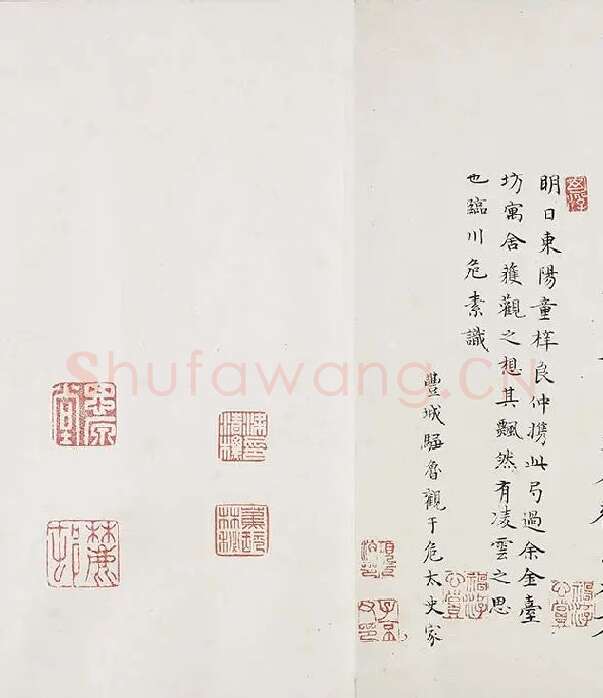 明日東陽童梓良仲携此弓過余金臺
坊寓舍獲觀之想其飄然有凌雲之思
也臨川危素識
豐城騶魯觀于危太史家
子京父印
思原堂
麓邨
Shufawang.CN